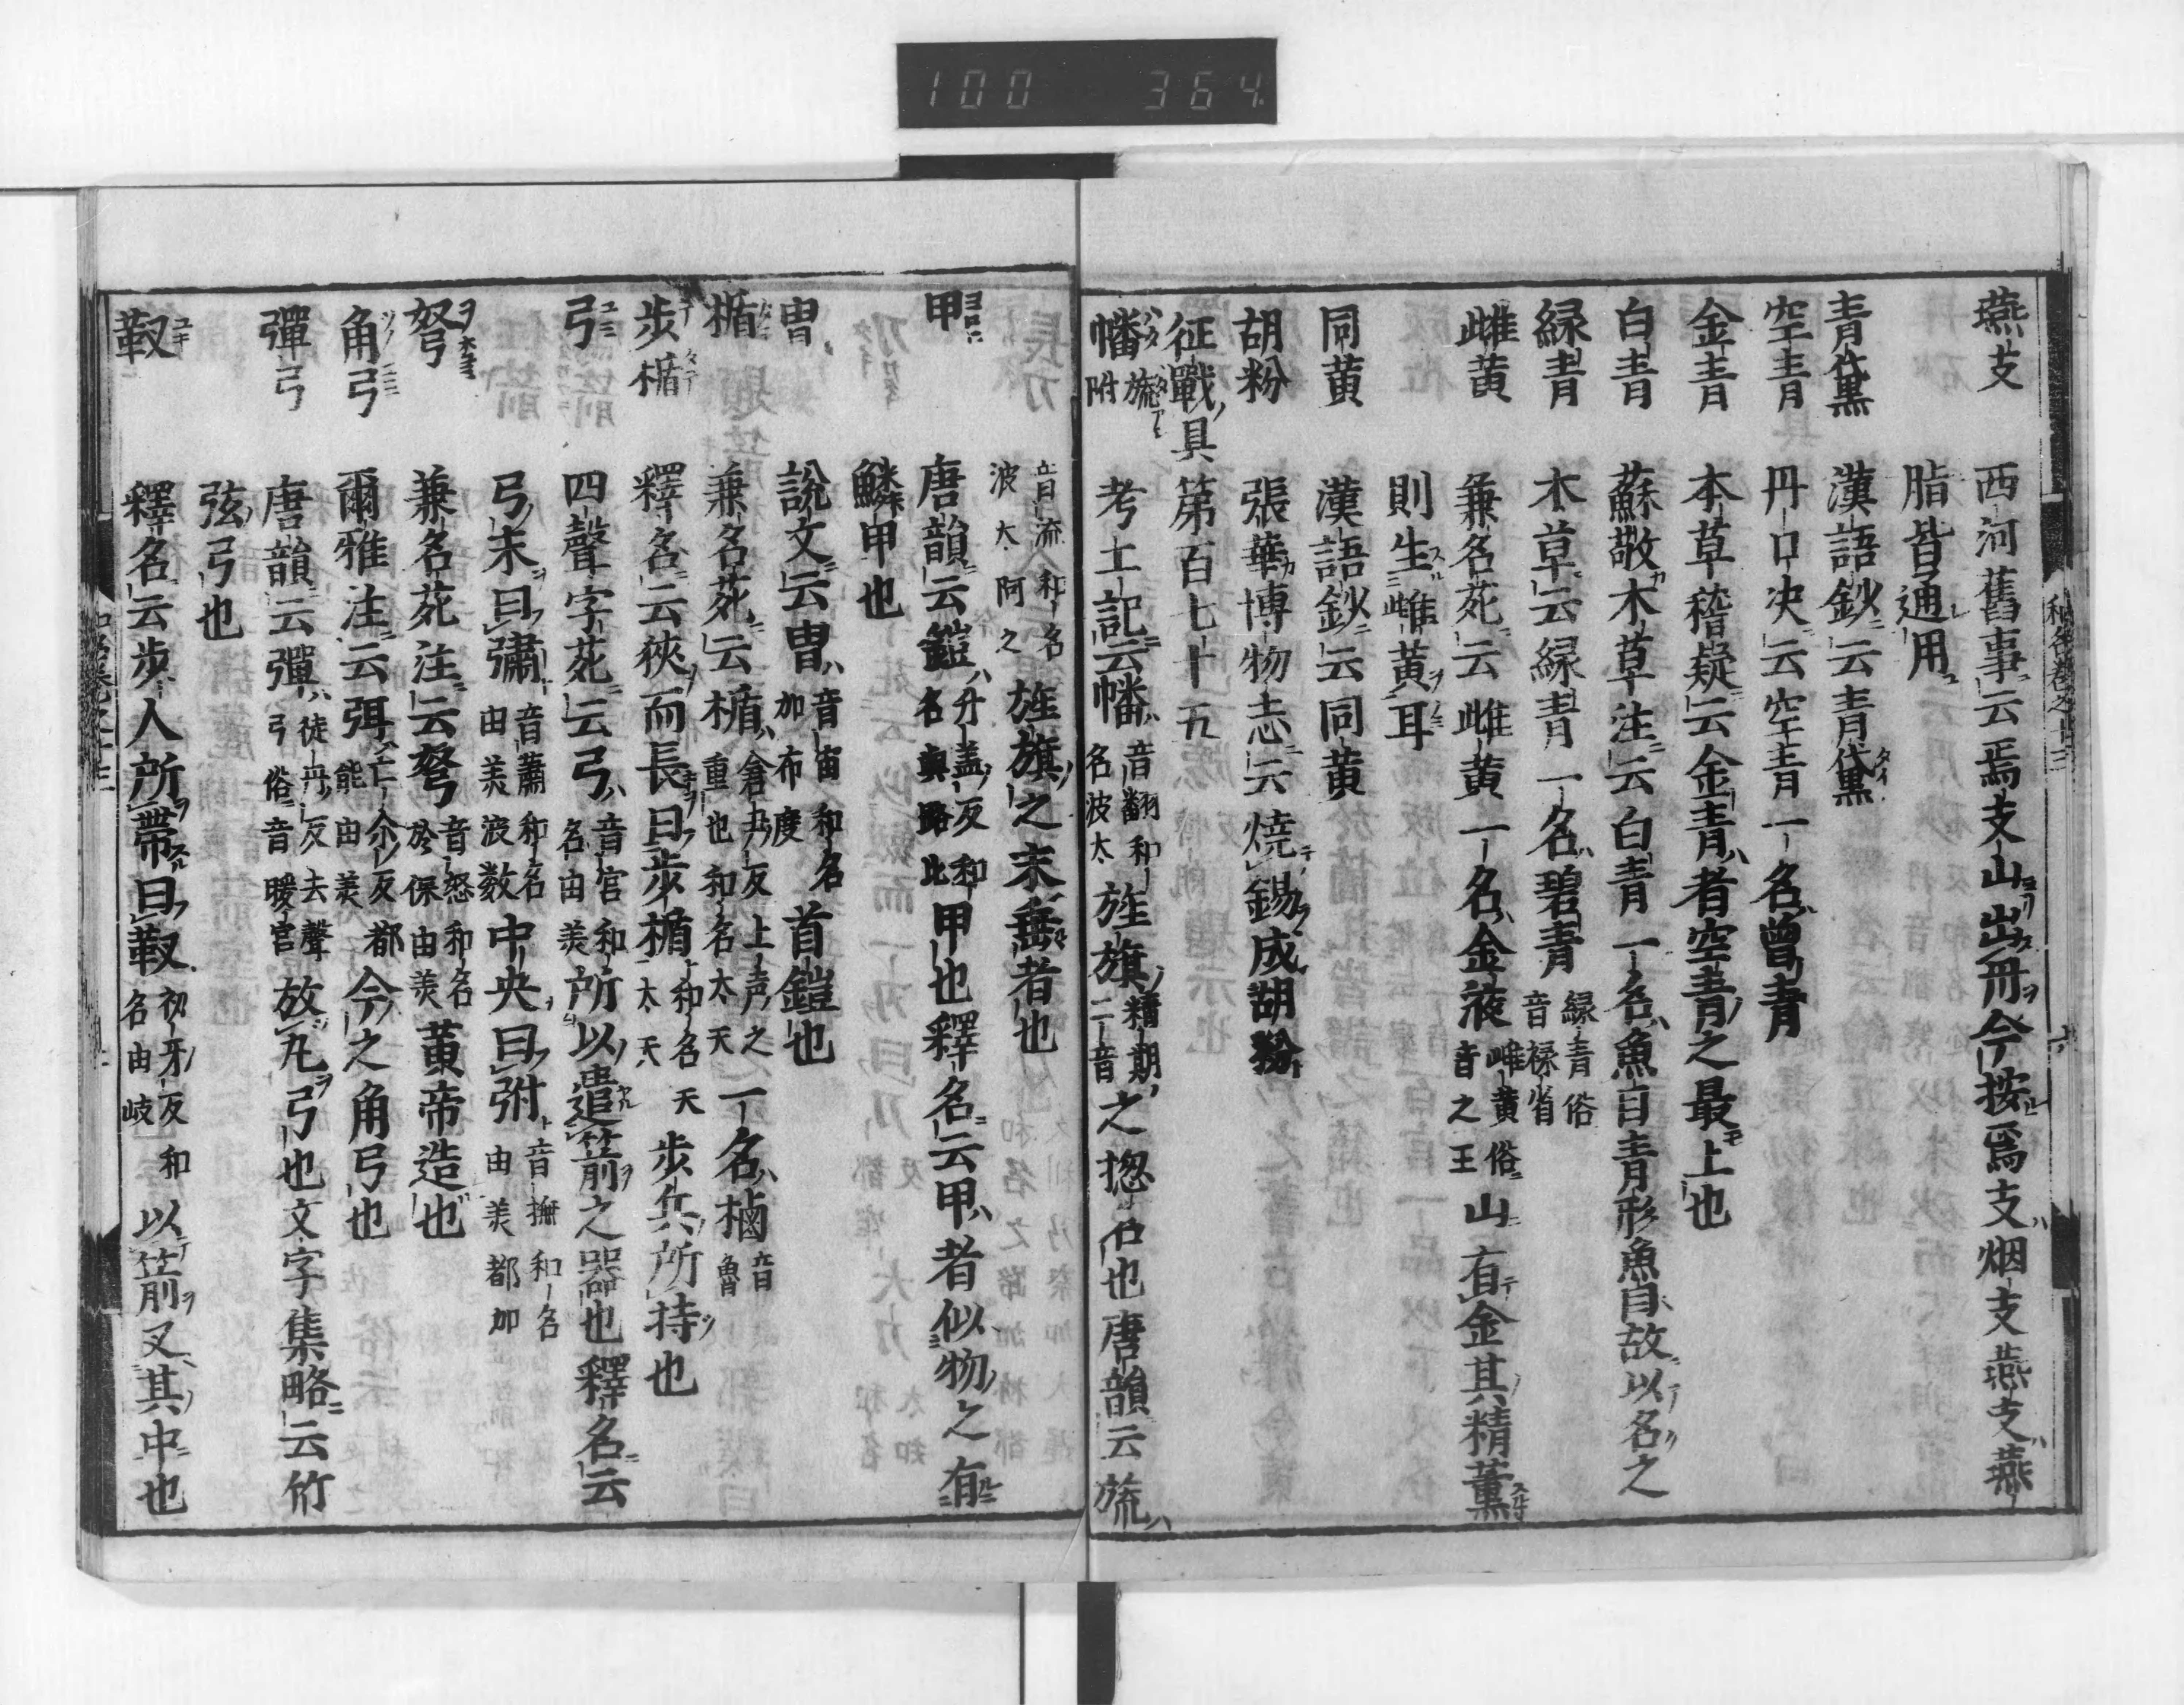 100 364
燕支 西河舊事云焉支山出丹今按焉支烟支燕支燕
脂皆通用
青黛 漢語鈔云青黛
空青 丹口决云空青一名曾青
金青 本草稽疑云金青者空青之最上也
白青 蘓敬本草注云白青一名魚目青形魚目故以名之
緑青 本草云緑青一名碧青 緑青俗音禄省
雌黄 兼名苑云雌黄一名金液 雌黄俗音之王 山有金其精薫
則生雌黄耳
同黄 漢語鈔云同黄
胡粉 張華博物志云焼錫成胡粉
征戰具第百七十五
幡 旒附 考工記云幡 音翻和名波太 旌旗 精期二音 之揔名也唐韻云旒
音流和名波太阿之 旌旗之末垂者也
甲 唐韻云鎧 名與路比 甲也釋名云甲者似物之有
鱗甲也
冑 說文云冑 音宙和名加布度 首鎧也
楯 兼名苑云楯 重也和名太天 一名樐 音魯
步楯 釋名云狹而長曰步楯 步兵所持也
弓 四聲字苑云弓 音宮和名由美 所以遣箭之器也釋名云
弓末曰彇 音蕭和名由美波數 中央曰弣 音撫和名由美都加
弩 兼名苑注云弩 音怒和名於保由美 黄帝造也
角弓 爾雅注云弭 今之角弓也
彈弓 唐韻云彈 徒丹反去聲弓俗音暖宮 放丸弓也文字集略云竹
弦弓也
靫 釋名云步人所帶曰靫 初牙反和名由岐 以箭叉其中也